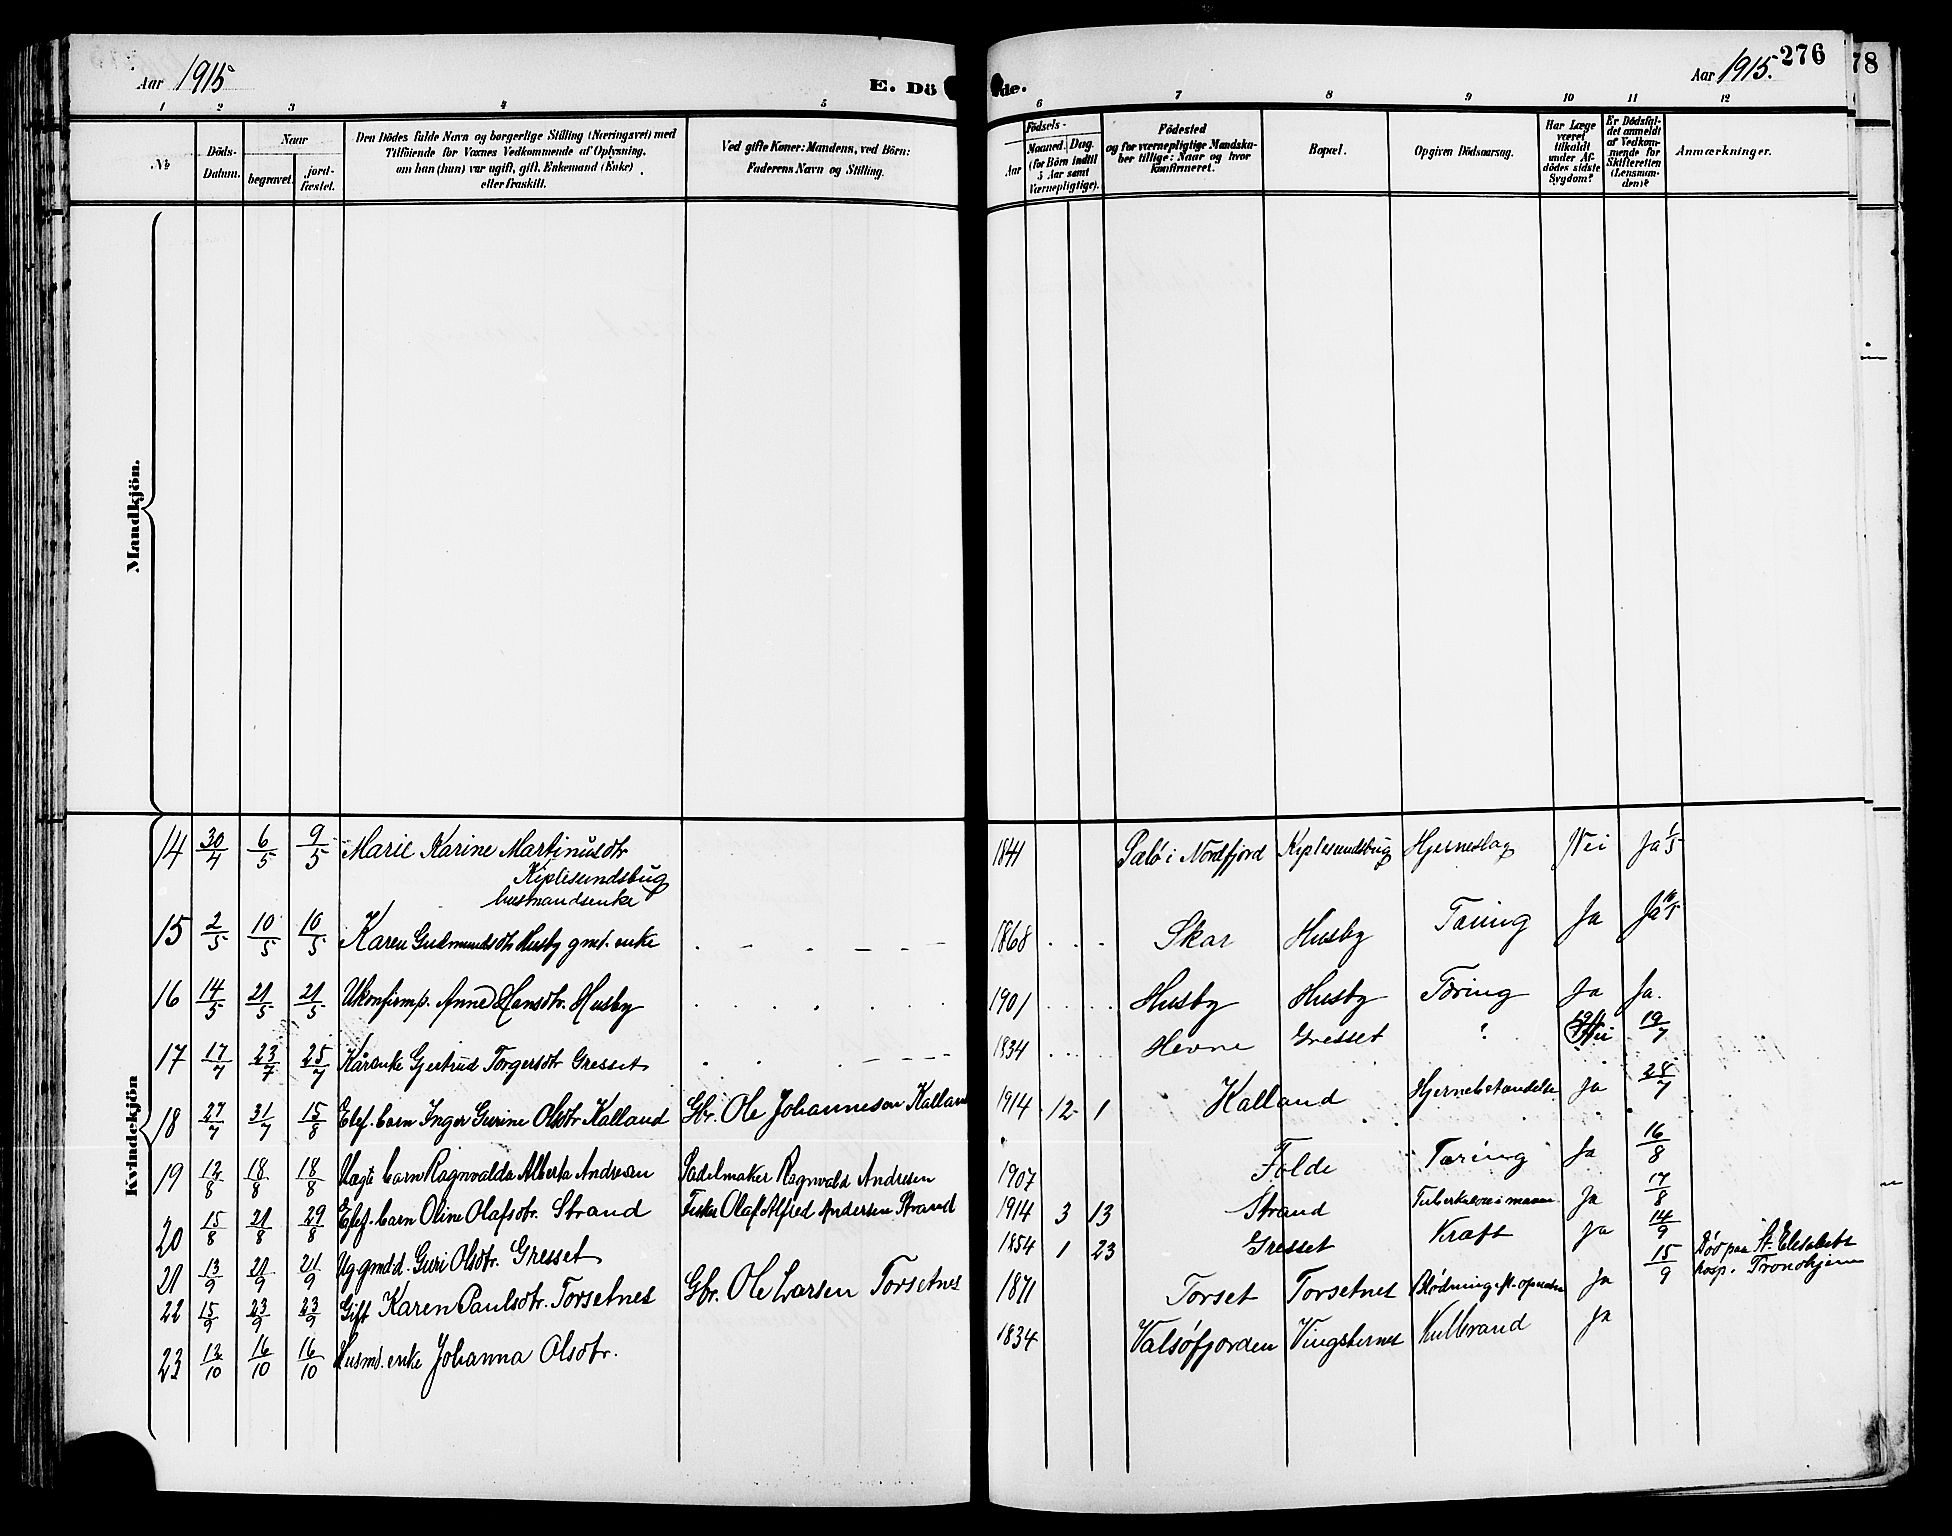 Aar 1915
E. Dö
de.
Aar 1915.
276
78
1 2 3 4 5 6 7 8 9 10 11 12
No
Döds-Datum.
Naar
begravet.
jord-fæstet.
Den Dödes fulde Navn og borgerlige Stilling (Næringsvei) med
Tilföiende for Voxnes Vedkommende af Oplysning,
om han (hun) var ugift, gift, Enkemand (Enke)
eller fraskilt.
Ved gifte Koner: Mandens, ved Börn:
Faderens Navn og Stilling.
Födsels-
Aar
Maaned. Dag.
(for Börn indtil
5 Aar samt
Værnepligtige).
Födested
og for værnepligtige Mandska-
ber tillige: Naar og hvor
konfirmeret.
Bopæl.
Opgiven Dödsaarsag.
Har Læge
været
tilkaldt
under Af-
dödes sidste
Sygdom?
Er Dödsfal-
det anmeldt
af Vedkom-
mende for
Skifteretten
(Lensman-
den)?
Anmærkninger.
Mandkjön.
Kvindekjön
14 30/4 6/5 9/5 Marie Karine Martinusdtr 1841 Nordfjord Kiplesundsbug Hjerneslag Nei Ja 1/5
Kiplesundsbug
husmandsenke
15 2/5 10/5 10/5 Karen Gudmundsdtr Husby gmd. enke 1868 Skar Husby Tæring Ja Ja 10/5
16 14/5 21/5 21/5 Ukonfirmp. Anne Hansdtr. Husby 1901 Husby Husby Tæring Ja Ja.
17 17/7 23/7 25/7 Kårenke Gjertrud Torgersdtr Gresset 1834 Hevne Gresset ? Nei 19/7
18 27/7 31/7 15/8 Elef. barn Inger Gurine Olsdtr Kalland Gbr. Ole Johannesen Kalland 1914 12 1 Kalland Hjernebetændelse Ja 28/7
19 12/8 18/8 18/8 Ægte barn Ragnvalda Alberta Andresen Sadelmaker Ragnvald Andresen 1907 Folde Tæring Ja 16/8
20 15/8 21/8 29/8 Elef. barn Oline Olafsdtr. Strand Fisker Olaf Alfred Andersen Strand 1914 3 13 Strand Ja 17/8
21 13/9 21/9 21/9 Ug. gmd.d. Guri Olsdtr. Gresset 1854 1 23 Gresset Kræft Ja 14/9
22 15/9 23/9 23/9 Gift Karen Paulsdtr. Torsetnes Gbr. Ole Larsen Torsetnes 1871 Torset Torsetnes Blødning Ja 15/9 Død paa St. Elisabeth
hosp. Trondhjem
23 12/10 16/10 16/10 Husmd. enke Johanna Olsdtr. 1834 Valsöfjorden Vingsternes Kulbrand Ja